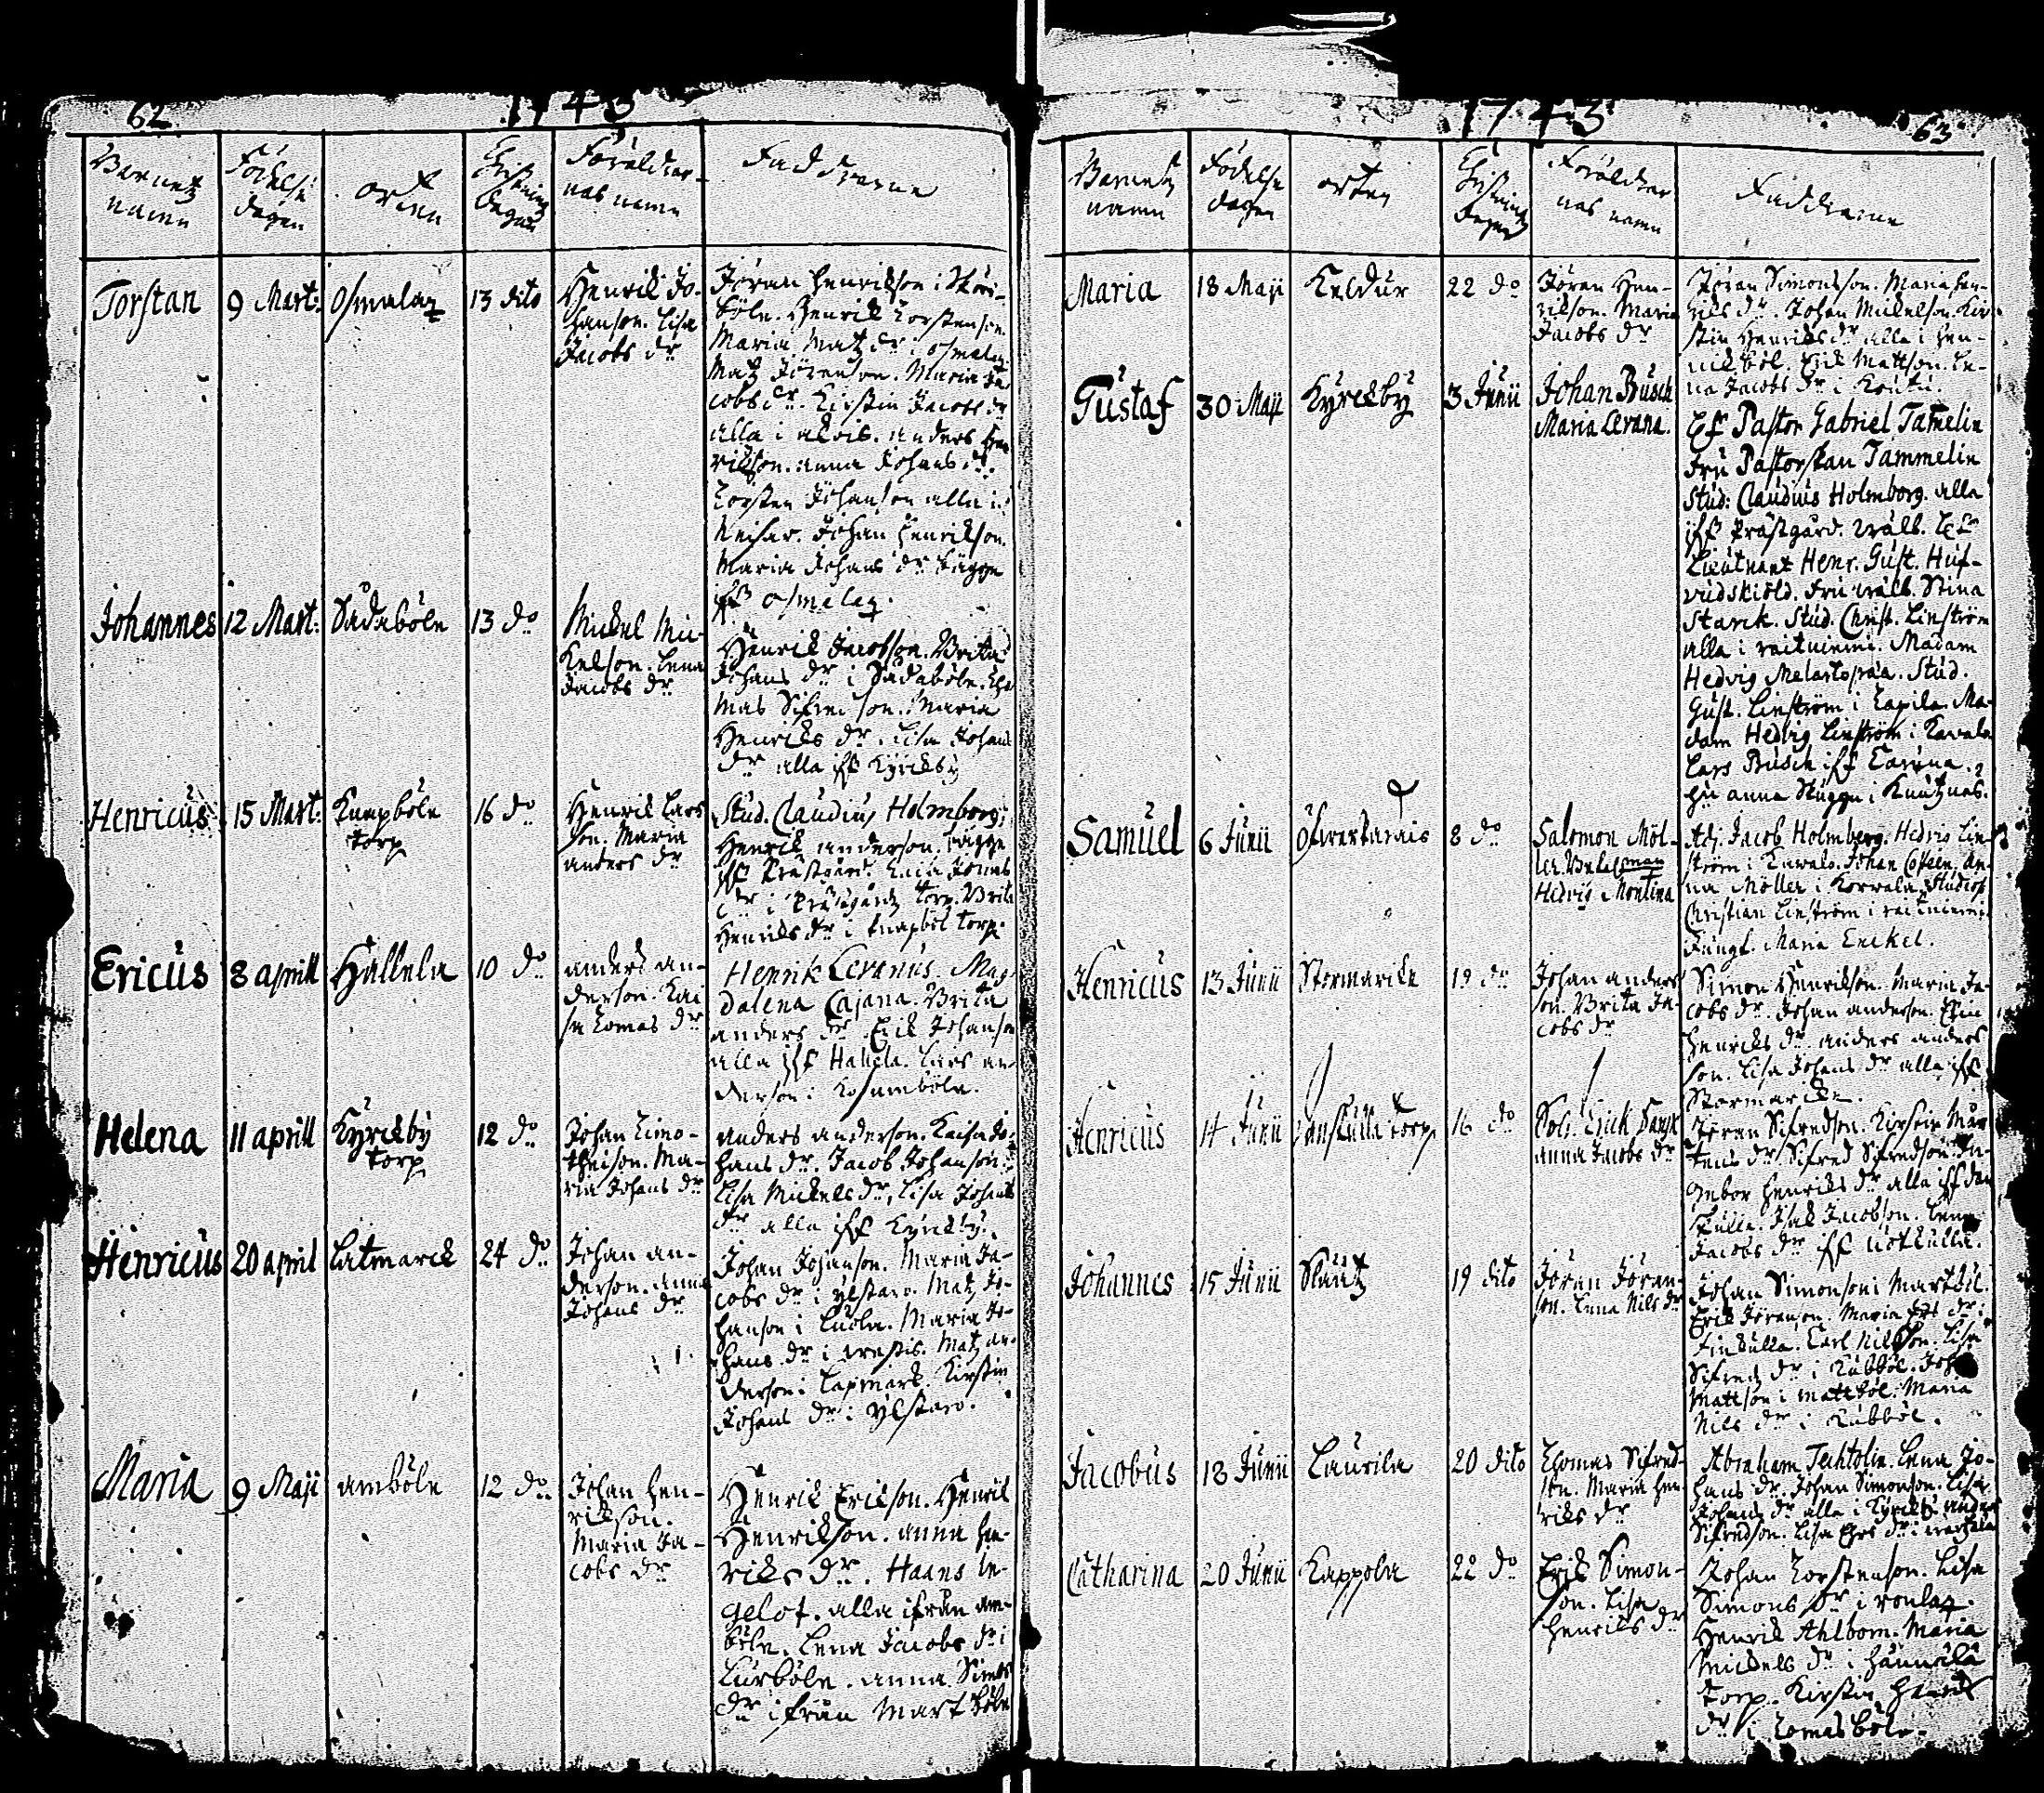 62
1743
Barnetz
namn
Födelse
dagen
orten
Christnings
dagen
Föräldrar-
nas namn
Faddrarne
Torstan
9 Mart:
osmalax
13 dito
Henrik Jo-
hanson. Lisa
Jacobs dr
Jöran Henrikson i
böle. Henrik Torstenson.
Maria Matz dr i osmalax.
Matz Jöranson. Maria Ja-
cobs dr. Kirstin Jacobs dr
alla i alvis. anders Hen
rikson. anna Johans dr.
Torsten Johanson alla i
Johan Henrikson.
Maria Johans dr bägge
iff osmalax.
Johannes
12 Mart:
Sudaböle
13 do
Mickel Mic-
kelson. Lena
Jacobs dr
Henrik Jacobson. Brita
Johans dr i Sudaböle. Tho
mas Sifredson. Maria
Henriks dr. Lisa Johans
dr alla iff Kyrckby
Henricus
15 Mart:
Knapböle
torp
16 do
Henrik Lars
son. Maria
anders dr
Stud. Claudius Holmborg;
Henrik anderson. bägge
iff Prästgård. Jonas
dr i Prästgårdz torp. Brita
Henriks dr i Knapböl torp.
Ericus
8 aprill
Hallela
10 do
anders an-
derson. Kai
sa Tomas dr
Henrik Levanus. Mag-
dalena Cajana. Brita
anders dr Erik Johanson
alla iff Hallela. Lars an-
derson i Kosamböle.
Helena
11 aprill
Kyrckby
torp
12 do
Johan Timo-
theison. Ma-
ria Johans dr
anders anderson. Kaisa Jo-
hans dr. Jacob Johanson.
Lisa Mickels dr, Lisa Johans
dr alla iff Kyrckby.
Henricus
20 april
Latmarck
24 do
Johan an-
derson. anna
Johans dr
Johan Johanson. Maria Ja-
cobs dr i ylstaro. Matz Jo-
hanson i Maria Jo-
hans dr i Matz an-
derson i Lapmarck. Kirstin
Johans dr i ylstaro.
Maria
9 Maji
amböle
12 do
Johan Hen-
rikson.
Maria Ja-
cobs dr
Henrik Erikson. Henrik
Henrikson. anna Hen-
riks dr. Haans In-
gelot. alla ifrån am-
böle. Lena Jacobs dr i
Lurböle. anna Simons
dr ifrån Martböle
1743
63
Barnetz
namn
Födelse
dagen
orten
Christnings
dagen
Föräldrar
nas namn
Faddrarne
Maria
18 Maji
Keldur
22 do
Jöran Hen-
rikson. Maria
Jacobs dr
Jöran Simonson. Maria Hen-
riks dr. Johan Mickelson. Kir-
stin Henriks dr alla i Hen-
nickböl. Erik Mattson. Le-
na Jacobs dr i Kouta.
Gustaf
30 Maji
Kyrckby
3 Junii
Johan Busch
Maria Levana.
Pastor Gabriel Tamelin
Fru Pastorskan Tammelin
Stud: Claudius Holmborg. alla
iff Prästgård. Wälb. H:r
Lieutnant Henr. Gust. Huf-
vudskiöld. Fru Wälb. Stina
Starck. Stud. Christ. Linström
alla i raituniemi. Madam
Hedvig Melartopaea. Stud.
Gust. Linström i Lapila. Ma-
dam Hedvig Linström i Kavala
Lars Busch iff
anna Stugge i Knutznäs.
Samuel
6 Junii
8 do
Salomon Möl-
ler.
Hedvig Montina
Adj. Jacob Holmberg. Hedvig Lin-
ström i Kawala. Johan An-
na Möller i Korwala. Studios.
Christian Linström i raituniemi
Jungf. Maria Enckel.
Henricus
13 Junii
Stormarcke
19 do
Johan anders
son. Brita Ja-
cobs dr
Simon Henrikson. Maria Ja-
cobs dr. Johan anderson. Elin
Henriks dr. anders anders
son. Lisa Johans dr alla iff
Stormarcke.
Henricus
14 Junii
Danskulla torp
16 do
Sol. Erick Dansk
anna Jacobs dr
Jöran Sifredson. Kirstin Mår
tens dr Sifred Sifredson. In-
gebor Henriks dr alla iff Dan
skulla. Isak Jacobson. Lena
Jacobs dr iff
Johannes
15 Junii
Skautz
19 dito
Jöran Jöran-
son. Lena Nils dr
Johan Simonson i Martböl.
Erik Jöranson. Maria Ers dr i
Finkulla. Carl Nilsson. Lisa
Sifredz dr i Kubböl. Joh
Mattson i Mattböl. Maria
Nils dr i Kubböl.
Jacobus
18 Junii
Laurila
20 dito
Thomas Sifred-
son. Maria Hen-
riks dr
Abraham Techtolin. Lena Jo-
hans dr. Johan Simonson. Lisa
Johans dr alla i Kyrckby. anders
Sifredson. Lisa Ers dr i
Catharina
20 Junii
Kappola
22 do
Erik Simon-
son. Lisa
Henriks dr
Johan Torstenson. Lisa
Simons dr i
Henrik Ahlbom. Maria
Mickels dr i Hännilä
torp. Kirstin Henriks
dr i Tomasböle.